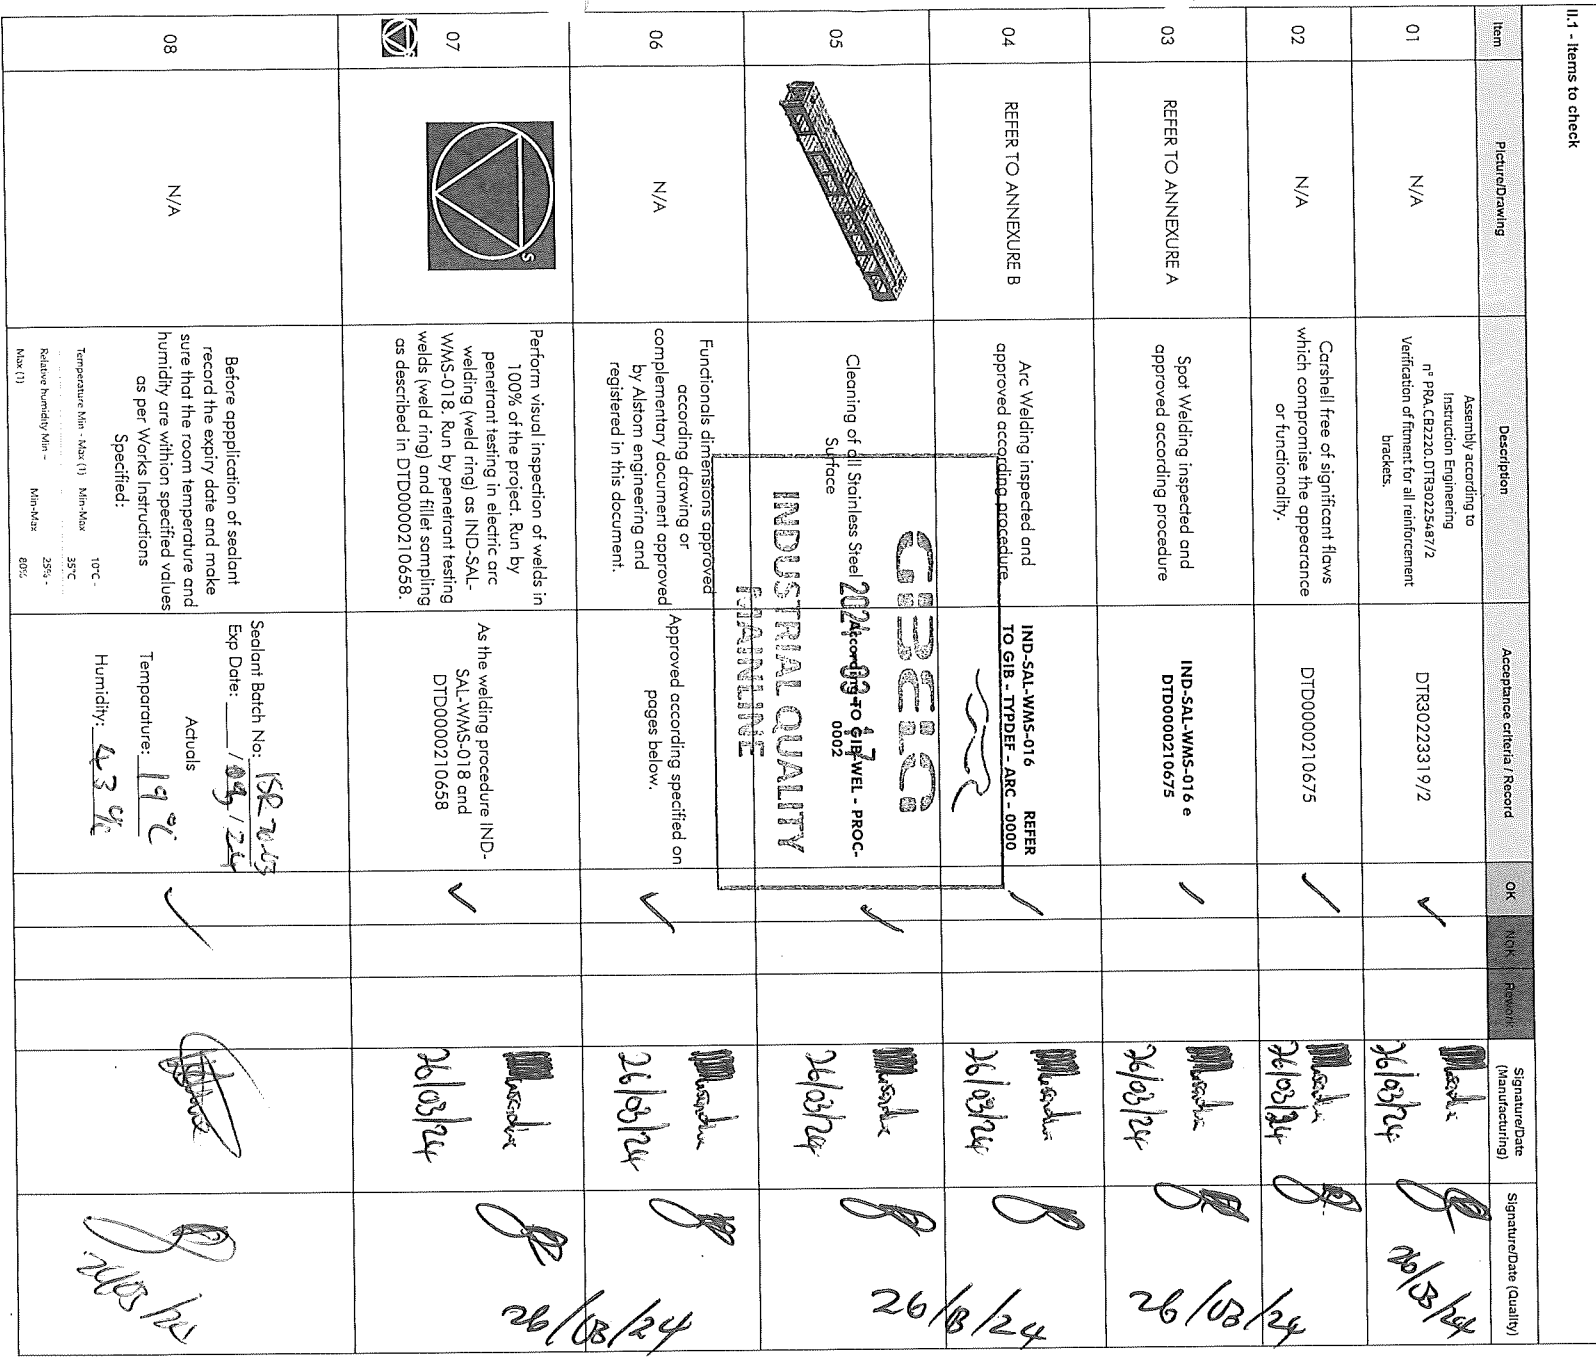 II.1 - Items to check
Item
Picture/Drawing
Description
Acceptance criteria / Record
OK
NOK
Rework
Signature/Date
(Manufacturing)
Signature/Date (Quality)
01
N/A
Assembly according to
Instruction Engineering
n° PRA.CB2220.DTR30225487/2
Verification of fitment for all reinforcement
brackets.
DTR30223319/2
✓
26/03/24
26/03/24
02
N/A
Carshell free of significant flaws
which compromise the appearance
or functionality.
DTD0000210675
✓
26/03/24
03
REFER TO ANNEXURE A
Spot Welding inspected and
approved according procedure
IND-SAL-WMS-016 e
DTD0000210675
✓
26/03/24
26/03/24
04
REFER TO ANNEXURE B
Arc Welding inspected and
approved according procedure.
IND-SAL-WMS-016 REFER
TO GIB - TYPDEF - ARC - 0000
✓
26/03/24
05
Cleaning of all Stainless Steel
Surface
According TO GIB-WEL - PROC-
0002
✓
26/03/24
26/03/24
GIBELA
2024 -03- 17
INDUSTRIAL QUALITY
MAINLINE
06
N/A
Functionals dimensions approved
according drawing or
complementary document approved
by Alstom engineering and
registered in this document.
Approved according specified on
pages below.
✓
26/03/24
07
S
Perform visual inspection of welds in
100% of the project. Run by
penetrant testing in electric arc
welding (weld ring) as IND-SAL-
WMS-018. Run by penetrant testing
welds (weld ring) and fillet sampling
as described in DTD0000210658.
As the welding procedure IND-
SAL-WMS-018 and
DTD0000210658
✓
26/03/24
26/03/24
08
N/A
Before appplication of sealant
record the expiry date and make
sure that the room temperature and
humidity are withion specified values
as per Works Instructions
Specified:
Temperature Min - Max (1) Min-Max 10°C -
35°C
Relative humidity Min - Min-Max 25% -
Max (1) 80%
Sealant Batch No:
Exp Date: / 09 / 24
Actuals
Temperature: 19 °C
Humidity: 43 %
✓